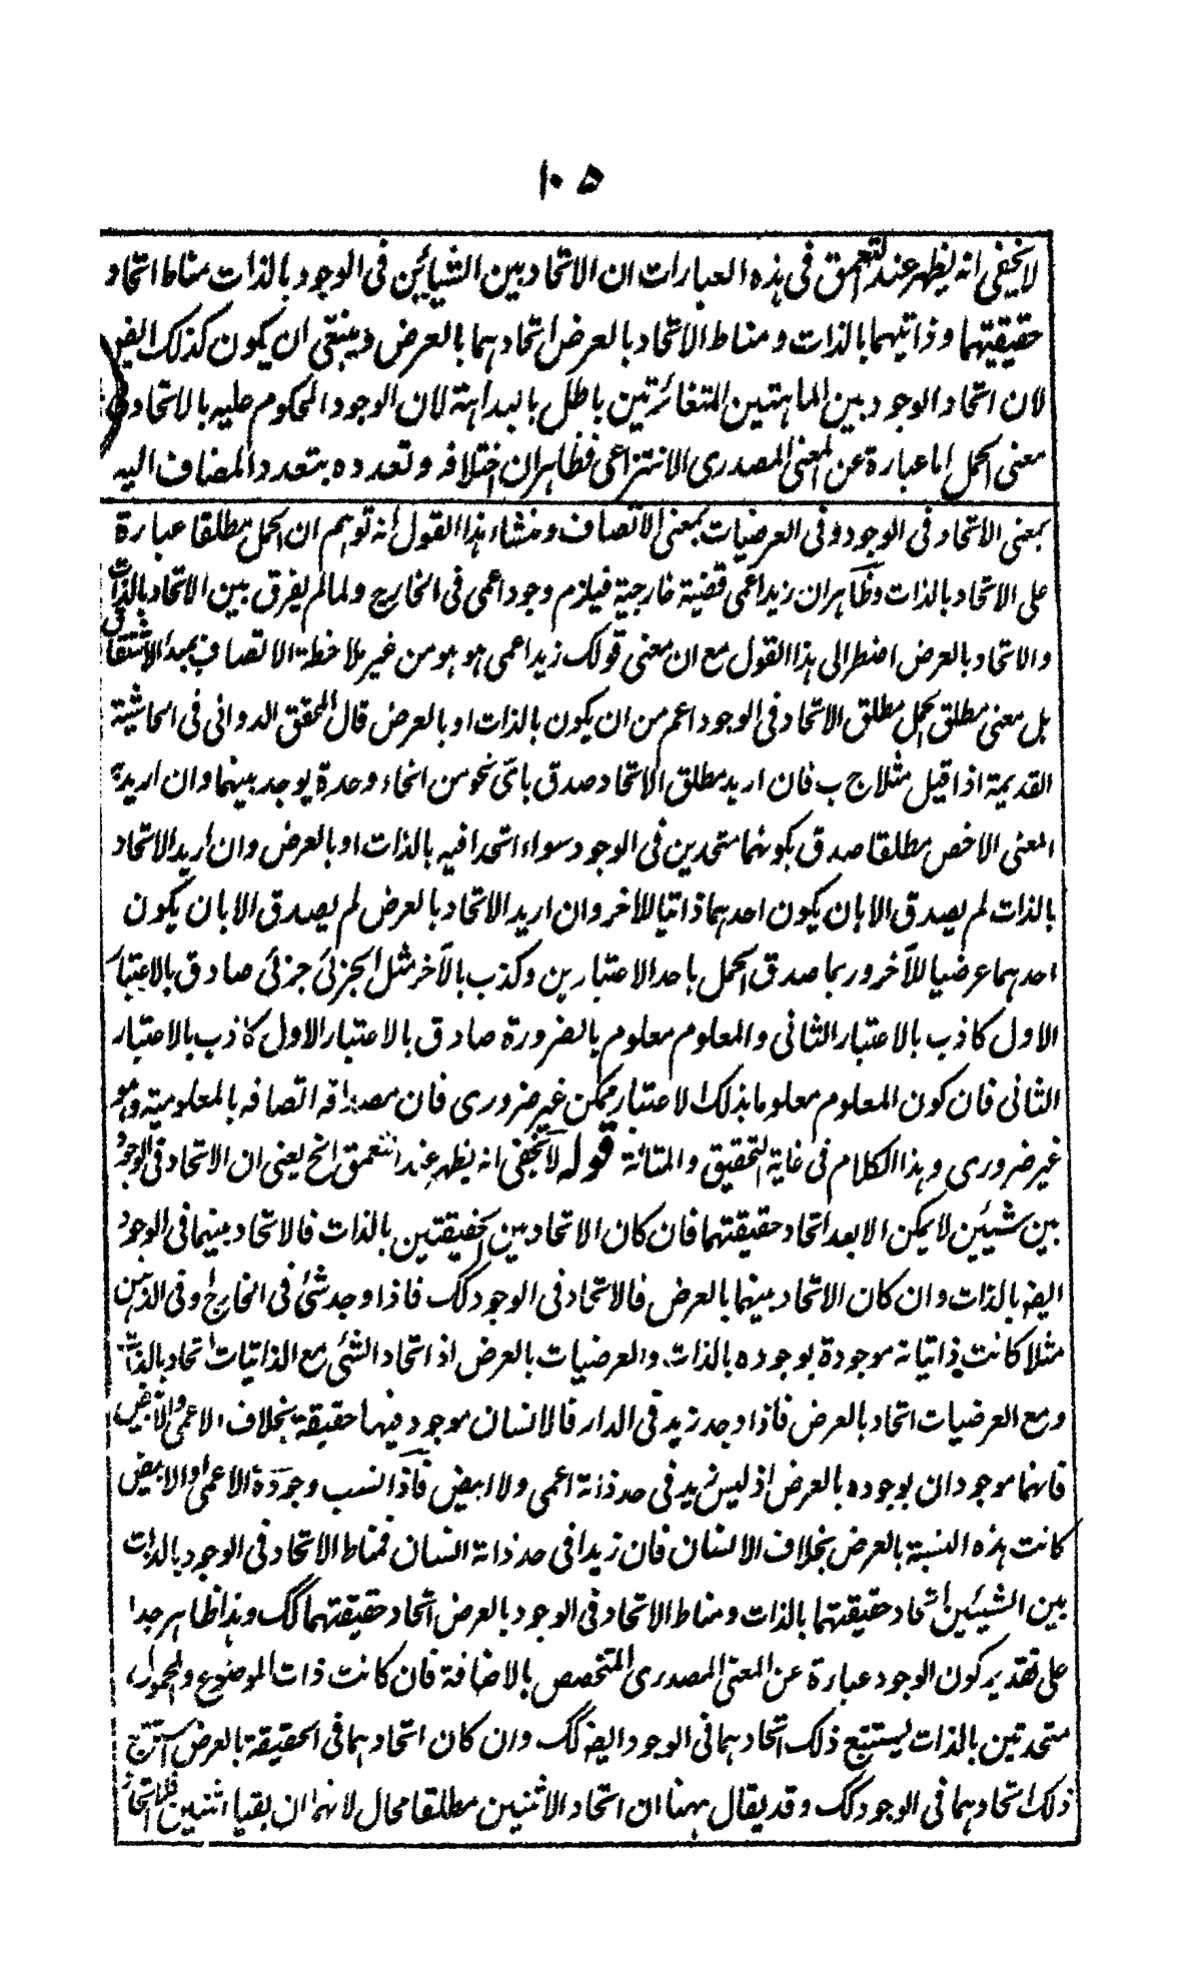 ۱۰۵
لا يخفى انه يظهر عند التعمق فى هذه العبارات ان الاتحاد بين الشيأين فى الوجود بالذات مناط اتحاد
حقيقيتهما وذاتيهما بالذات ومناط الاتحاد بالعرض اتحادهما بالعرض وينبغى ان يكون كذلك ايض
لان اتحاد الوجود بين الماهيتين المتغائرتين باطل بالبداهة لان الوجود المحكوم عليه بالاتحاد فى
معنى الحمل اما عبارة عن المعنى المصدرى الانتزاعى فظاهر ان اختلافه وتعدده بتعدد المضاف اليه
بمعنى الاتحاد فى الوجود وفى العرضيات بمعنى الاتصاف ومنشاء هذا القول انه توهم ان الحمل مطلقا عبارة
على الاتحاد بالذات وظاهر ان زيد اعمى قضية خارجية فيلزم وجود اعمى فى الخارج ولما لم يفرق بين الاتحاد بالذات
والاتحاد بالعرض اضطر الى هذا القول مع ان معنى قولك زيد اعمى هو هو من غير ملاحظة الاتصاف بمبدا الاشتقاق
بل معنى مطلق الحمل مطلق الاتحاد فى الوجود اعم من ان يكون بالذات او بالعرض قال المحقق الدوانى فى الحاشية
القديمة اذا قيل مثلا ج ب فان اريد مطلق الاتحاد صدق باى نحو من انحاء وحدة يوجد بينهما وان اريد به
المعنى الاخص مطلقا صدق بكونهما متحدين فى الوجود سواء اتحدا فيه بالذات او بالعرض وان اريد الاتحاد
بالذات لم يصدق الا بان يكون احدهما ذاتيا للآخر وان اريد الاتحاد بالعرض لم يصدق الا بان يكون
احدهما عرضيا للآخر وربما صدق الحمل باحد الاعتبارين وكذب بالآخر مثل الجزئى جزئى صادق بالاعتبار
الاول كاذب بالاعتبار الثانى والمعلوم معلوم بالضرورة صادق بالاعتبار الاول كاذب بالاعتبار
الثانى فان كون المعلوم معلوما بذلك الاعتبار ممكن غير ضرورى فان مصداقه اتصافه بالمعلومية وهو
غير ضرورى وهذا الكلام فى غاية التحقيق والمتانة قوله لا يخفى انه يظهر عند التعمق الخ يعنى ان الاتحاد فى الوجود
بين شيئين لا يمكن الا بعد اتحاد حقيقتهما فان كان الاتحاد بين الحقيقتين بالذات فالاتحاد بينهما فى الوجود
ايضه بالذات وان كان الاتحاد بينهما بالعرض فالاتحاد فى الوجود كك فاذا وجد شئ فى الخارج او فى الذهن
مثلا كانت ذاتياته موجودة بوجوده بالذات والعرضيات بالعرض اذ اتحاد الشئ مع الذاتيات اتحاد بالذات
ومع العرضيات اتحاد بالعرض فاذا وجد زيد فى الدار فالانسان موجود فيها حقيقة بخلاف الاعمى والابيض
فانهما موجودان بوجوده بالعرض اذ ليس زيد فى حد ذاته اعمى ولا ابيض فاذا نسب وجوده الى الاعمى او الابيض
كانت هذه النسبة بالعرض بخلاف الانسان فان زيدا فى حد ذاته انسان فمناط الاتحاد فى الوجود بالذات
بين الشيئين اتحاد حقيقتهما بالذات ومناط الاتحاد فى الوجود بالعرض اتحاد حقيقتهما كك وهذا ظاهر جدا
على تقدير كون الوجود عبارة عن المعنى المصدرى المتخصص بالاضافة فان كانت ذات الموضوع والمحمول
متحدتين بالذات يستتبع ذلك اتحادهما فى الوجود ايضه كك وان كان اتحادهما فى الحقيقة بالعرض
ذلك اتحادهما فى الوجود كك وقد يقال ههنا ان اتحاد الاثنين مطلقا محال لانهما ان بقيا اثنين فلا اتحاد